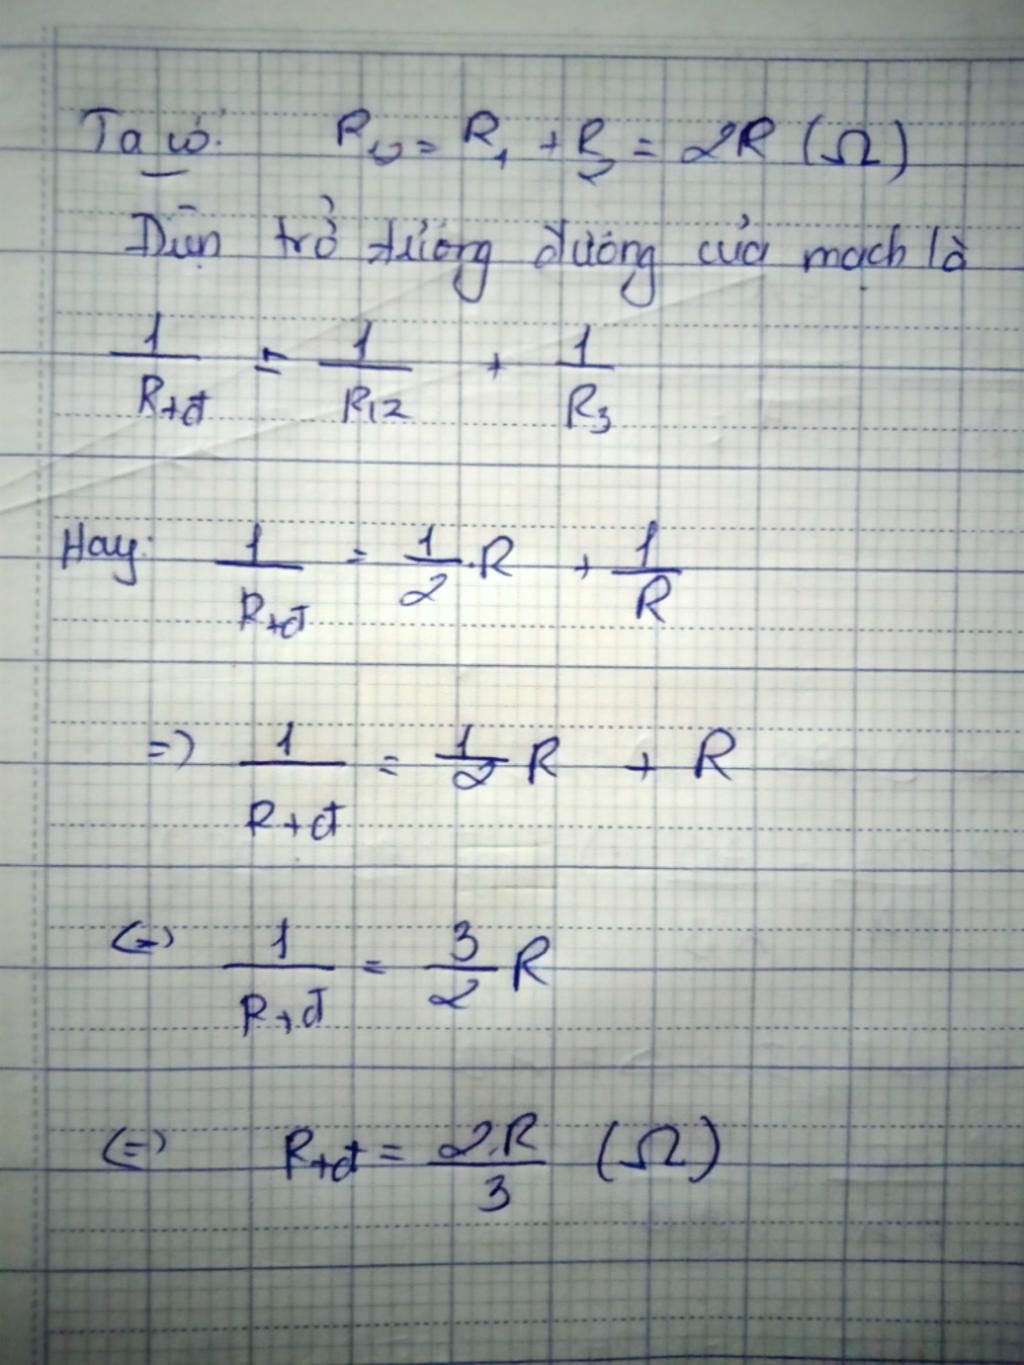 Ta có: R12 = R1 + R2 = 2R (Ω)
Điện trở tương đương của mạch là
1/Rtđ = 1/R12 + 1/R3
Hay: 1/Rtđ = 1/2 . R + 1/R
=> 1/Rtđ = 1/2 R + R
<=> 1/Rtđ = 3/2 R
<=> Rtđ = 2.R/3 (Ω)